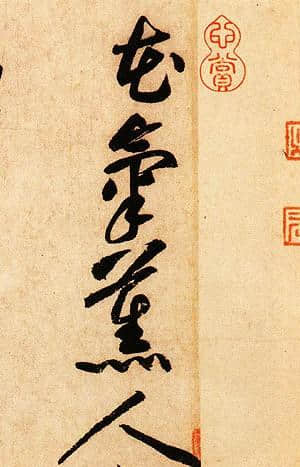 花氣薰人